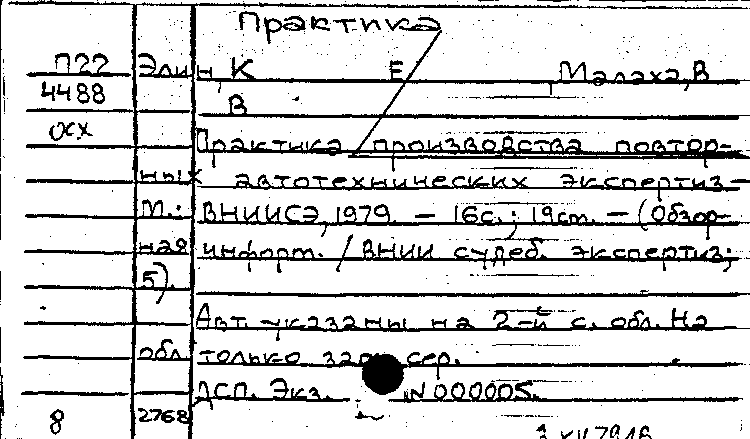 Практика
П22 Элин, К Е , Малаха, В
4488 В
осх
Практика производства повтор-
ных автотехнических экспертиз –
М.: ВНИИСЭ, 1979. – 16с.; 19см. – (Обзор-
ная информ. / ВНИИ судеб. экспертиз;
5).
Авт. указаны на 2-й с. обл. На
обл. только сер.
ДСП. Экз. N 000005.
8 2768